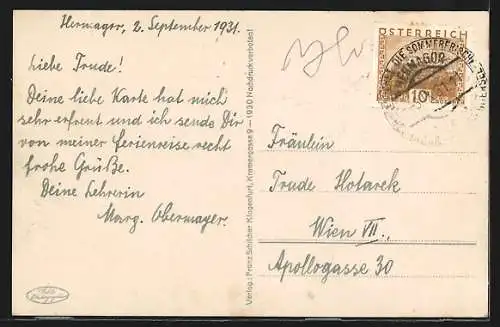 Hermagor, 2. September 1931.
Liebe Trude!
Deine liebe Karte hat mich
sehr erfreut und ich sende Dir
von meiner Ferienreise recht
frohe Grüße.
Deine Lehrerin
Marg. Obermayer.
Verlag: Franz Schilcher Klagenfurt, Kramergasse 9 — 1930 Nachdruck verboten!
ÖSTERREICH
10
DIE SOMMERFRISCHE
HERMAGOR
Fräulein
Trude Hotarek
Wien VII.
Apollogasse 30